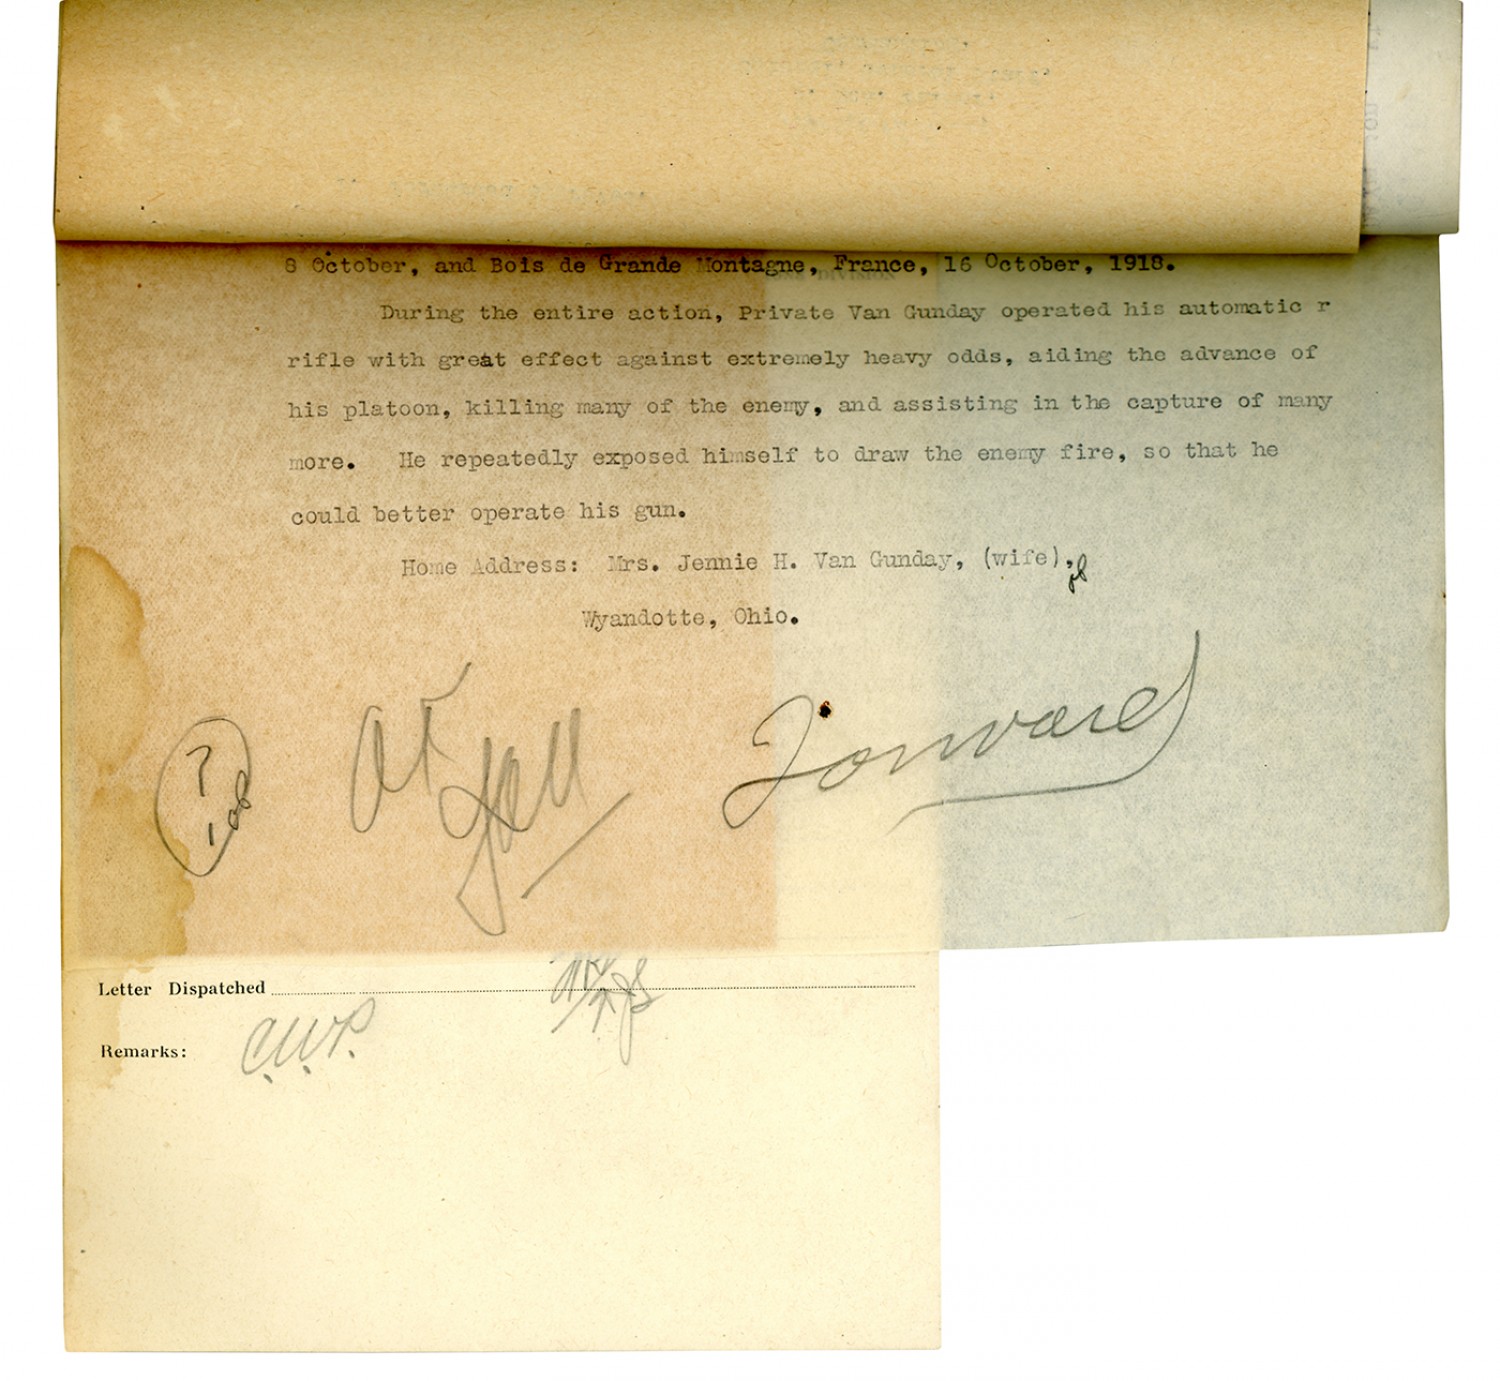 8 October, and Bois de Grande Montagne, France, 16 October, 1918.
During the entire action, Private Van Gunday operated his automatic r
rifle with great effect against extremely heavy odds, aiding the advance of
his platoon, killing many of the enemy, and assisting in the capture of many
more. He repeatedly exposed himself to draw the enemy fire, so that he
could better operate his gun.
Home Address: Mrs. Jennie H. Van Gunday, (wife),
Wyandotte, Ohio.
Forward
Letter Dispatched
Remarks: C.W.P.